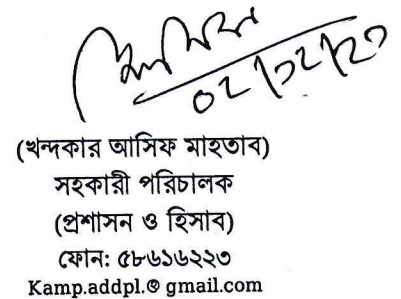 ০২/১২/২০
(খন্দকার আসিফ মাহতাব)
সহকারী পরিচালক
(প্রশাসন ও হিসাব)
ফোন: ৫৮৬১৬২২৩
Kamp.addpl.@ gmail.com